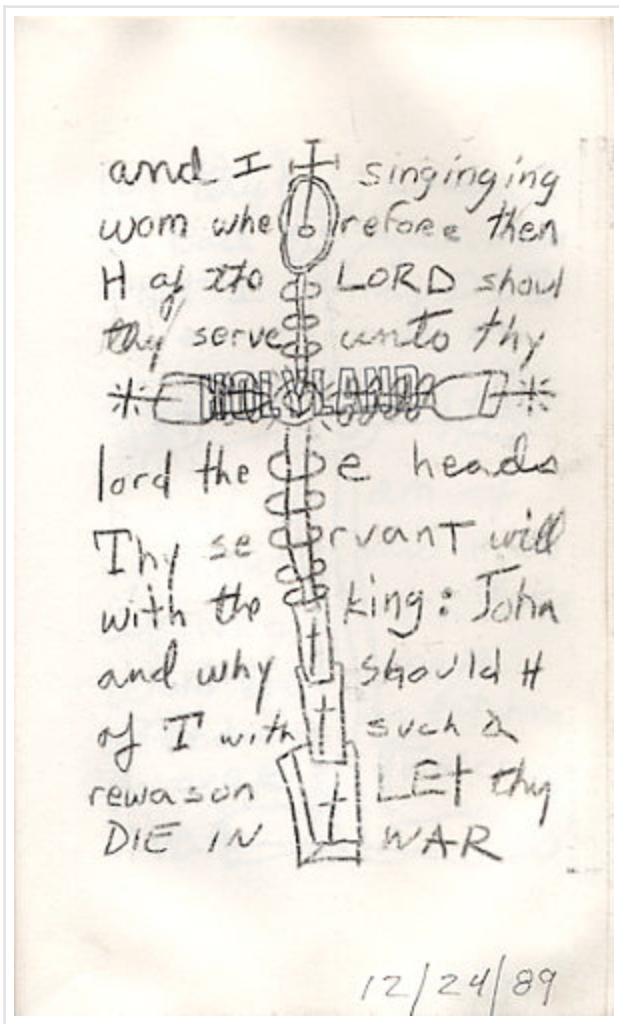 and I singinging
wom wherefore then
H of LORD shoul
thy serve unto thy
HOLYLAND
lord the e heads
Thy servant will
with the king: John
and why should H
of I with such a
rewason LET thy
DIE IN WAR
12/24/89